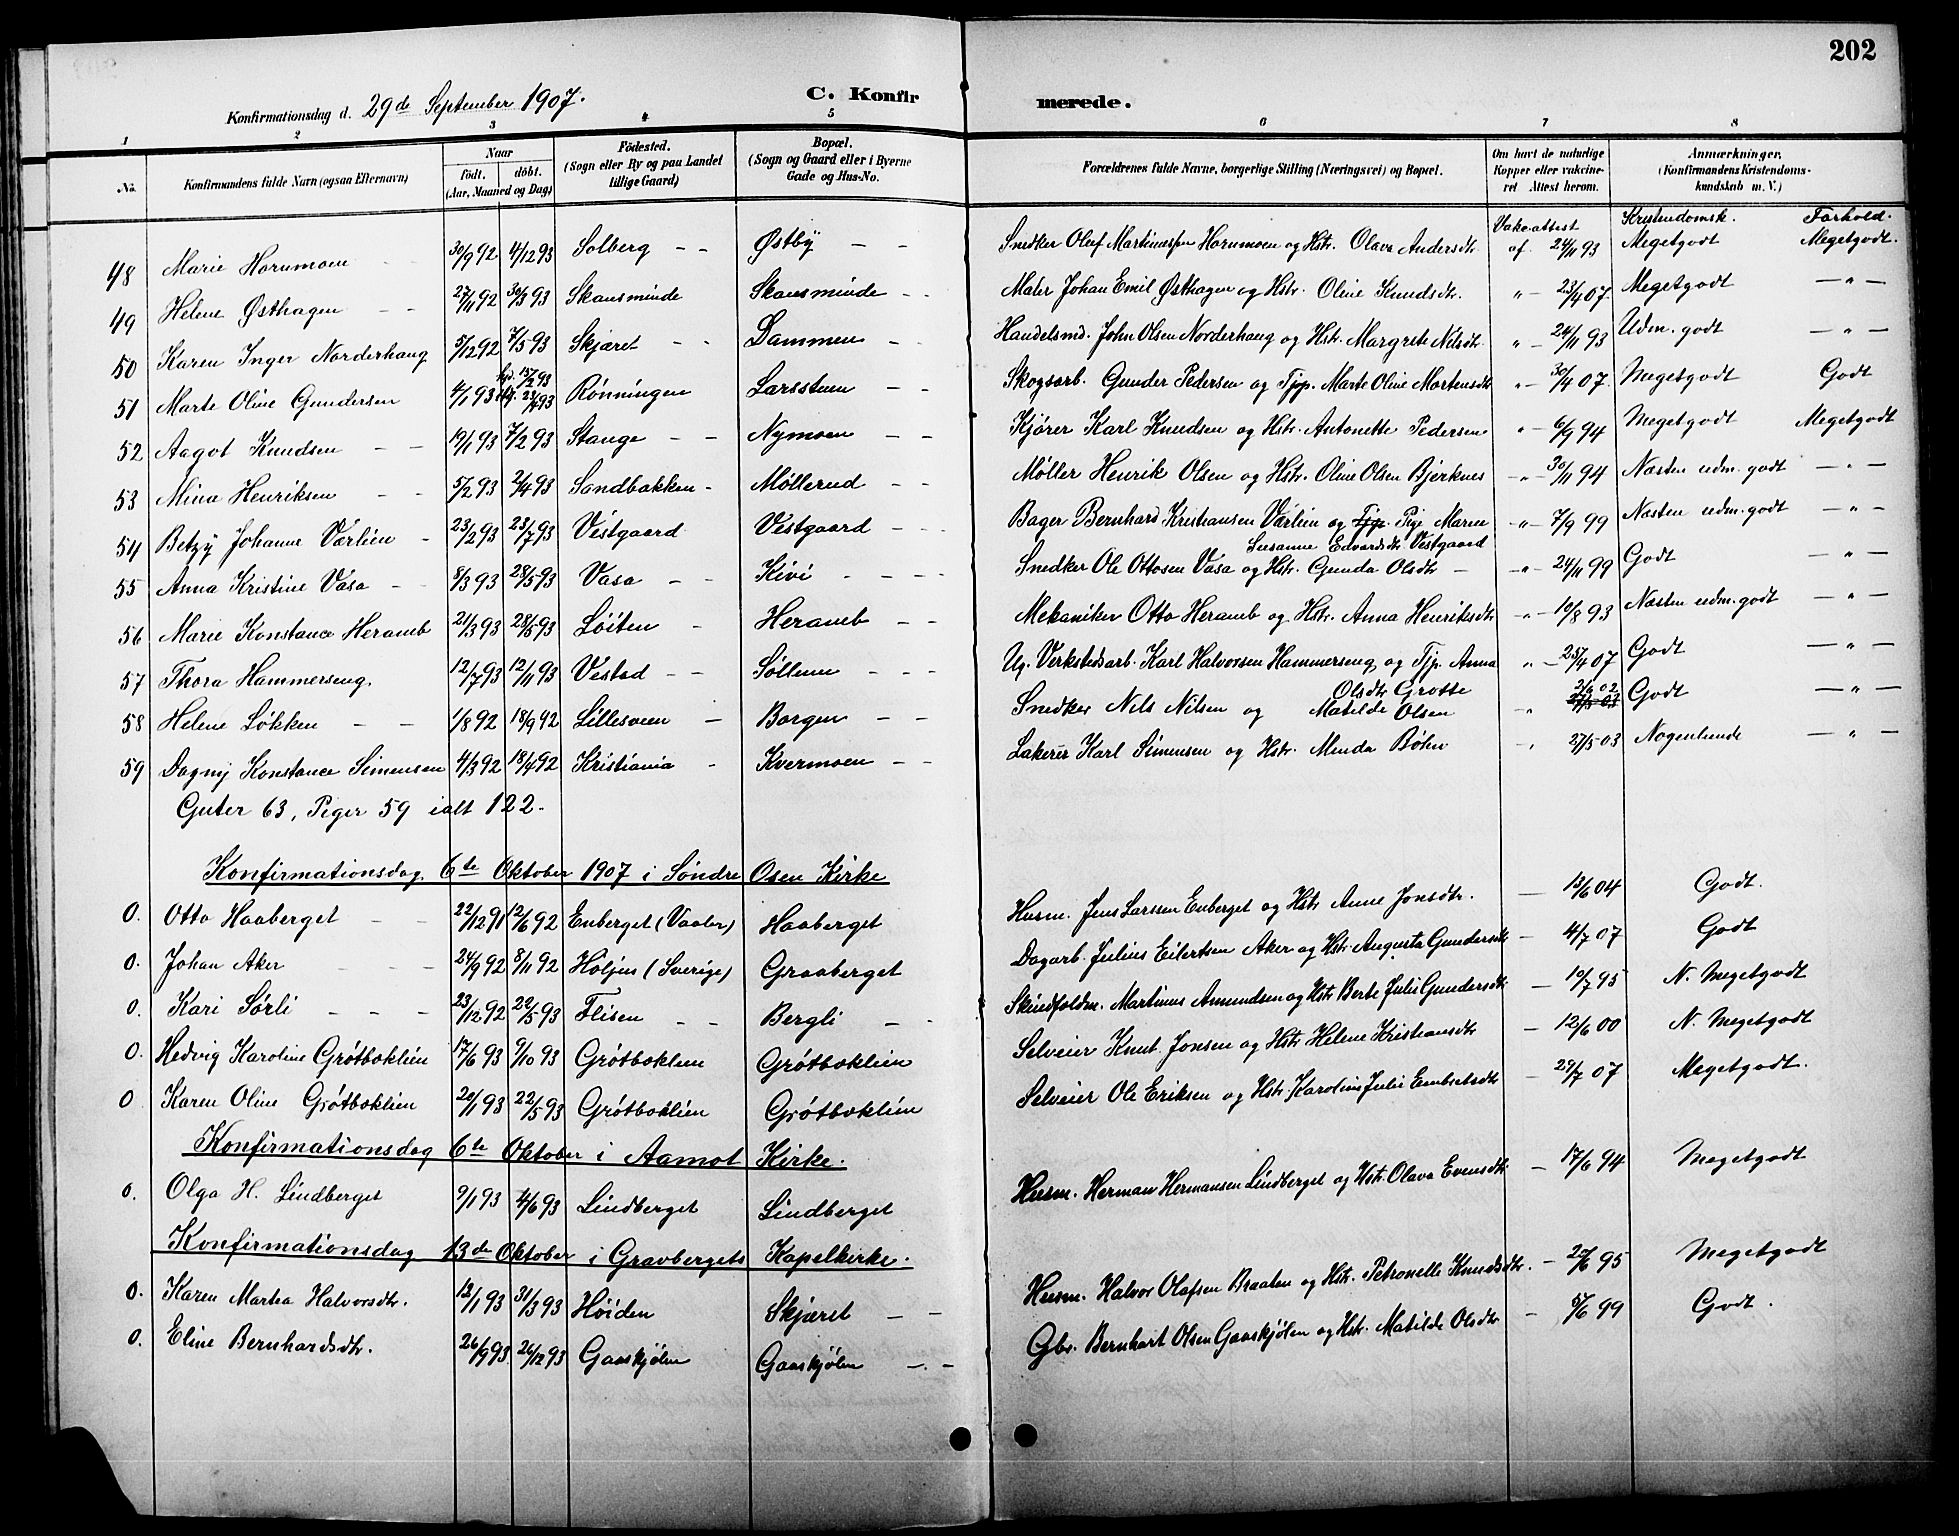 202
Konfirmationsdag d. 29de September 1907.
C. Konfir merede.
1 2 3 4 5 6 7 8
No. Konfirmandens fulde Navn (ogsaa Efternavn) Naar født. døbt. (Aar, Maaned og Dag) Födested. (Sogn eller By og paa Landet tillige Gaard) Bopæl. (Sogn og Gaard eller i Byerne Gade og Hus-No. Forældrenes fulde Navne, borgerlige Stilling (Næringsvei) og Bopæl. Om havt de naturlige Kopper eller vaccineret Attest herom. Anmærkninger. (Konfirmandens Kristendomskundskab m. V.)
Vakc.attest Kristendomsk. Forhold.
48 Marie Hornmoen 30/9 92 4/12 93 Solberg Østby Snedker Oluf Martinussen Hornmoen og Hstr. Olava Andersdtr. af 24/11 93 Megetgodt Megetgodt.
49 Helene Østhagen 27/11 92 30/3 93 Skansminde Skansminde Maler Johan Emil Østhagen og Hstr. Oline Knudsdtr. " 23/4 07. Megetgodt — " —
50 Karen Inger Norderhaug 5/12 92 7/5 93 Skjæret Dammen Handelsmd. John Olsen Norderhaug og Hstr. Margrete Nilsdtr. " 24/11 93 Udm. godt — " —
51 Marte Oline Gundersen 4/1 93 hjd. 15/2 93 23/4 93 Rönningen Larsstuen Skogsarb. Gunder Pedersen og Tjp. Marte Oline Mortensdtr " 30/4 07. Megetgodt Godt
52 Aagot Knudsen 19/1 93 7/2 93 Stange Nymoen Kjører Karl Knudsen og Hstr. Antonette Pedersen " 6/9 94 Megetgodt Megetgodt
53 Mina Henriksen 5/2 93 2/4 93 Sandbakken Möllerud Møller Henrik Olsen og Hstr. Oline Olsen Bjerknes " 30/11 94 Næsten udm. godt — " —
54 Betzy Johanne Værlien 23/2 93 23/7 93 Vestgaard Vestgaard Bager Bernhard Kristiansen Værlien og Tjp. Pige Maren " 7/9 99 Næsten udm. godt — " —
Susanne Edvardsdtr Vestgaard
55 Anna Kristine Vasa 8/3 93 28/5 93 Vasa Kivi Snedker Ole Ottosen Vasa og Hstr. Gunda Olsdtr " 24/11 99 Godt — " —
56 Marie Konstance Heramb 21/3 93 28/5 93 Löiten Heramb Mekaniker Otto Heramb og Hstr. Anna Henriksdtr " 10/8 93 Næsten udm. godt — " —
57 Thora Hammerseng. 12/7 93 12/11 93 Vestad Söllien Ug. Verkstedsarb. Karl Halvorsen Hammerseng og Tjp. Anna " 25/4 07 Godt — " —
Olsdtr Grotte
58 Helene Løkken 1/8 92 18/9 92 Lillesveen Borgen Snedker Nils Nilsen og Matilde Olsen " 2/9 02 27/5 03 Godt — " —
59 Dagny Konstance Simensen 4/3 92 18/4 92 Kristiania Kvermoen Lakerer Karl Simensen og Hstr. Minda Bøhn " 27/5 03 Nogenlunde — " —
Guter 63, Piger 59 ialt 122.
Konfirmationsdag 6te Oktober 1907 i Söndre Osen Kirke
0. Otto Haaberget 22/12 91 12/6 92 Enberget (Vaaler) Haaberget Husm. Jens Larssen Enberget og Hstr Anne Jonsdtr. — 13/6 04 Godt.
0. Johan Aker 24/9 92 8/11 92 Holjus (Sverige) Graaberget Dagarb. Julius Eilertsen Aker og Hstr Augusta Gundersdtr — 4/7 07 Godt
0. Kari Sörli 23/12 92 22/5 93 Flisen Bergli Skindfoldm. Martinus Amundsen og Hstr Berte Julie Gundersdtr — 10/7 95 N. Megetgodt
0. Hedvig Karoline Grötboklien 17/6 93 9/10 93 Grötboklien Grötboklien Selveier Knut Jonsen og Hstr Helene Kristiansdtr — 12/6 00 N. Megetgodt
0 Karen Oline Grötboklien 20/1 93 22/5 93 Grötboklien Grötboklien Selveier Ole Eriksen og Hstr Karoline Julie Embretsdtr — 29/7 07 Megetgodt.
Konfirmationsdag 6te Oktober i Aamot Kirke.
0. Olga H. Lindberget 9/1 93 4/6 93 Lindberget Lindberget Husm. Herman Hermansen Lindberget og Hstr. Olava Evensdtr — 17/6 94 Megetgodt
Konfirmationsdag 13de Oktober i Gravbergets Kapelkirke.
0. Karen Martea Halvorsdtr. 12/1 93 31/3 93 Höiden Skjæret Husm. Halvor Olafsen Braaten og Hstr. Petronelle Knudsdtr. — 20/6 95 Megetgodt
0. Eline Bernhardsdtr. 26/9 93 26/12 93 Gaaskjølen Gaaskjølen Gbr. Bernhart Olsen Gaaskjølen og Hstr. Matilde Olsdtr — 5/6 99 Godt.